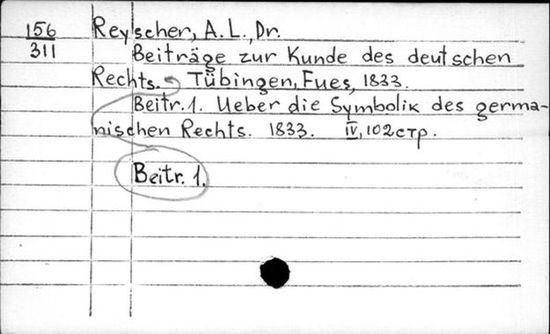 156 Reyscher, A. L., Dr.
311 Beiträge zur Kunde des deutschen
Rechts. Tübingen, Fues, 1833.
Beitr. 1. Ueber die Symbolik des germa-
nischen Rechts. 1833. IV, 102 стр.
Beitr. 1.